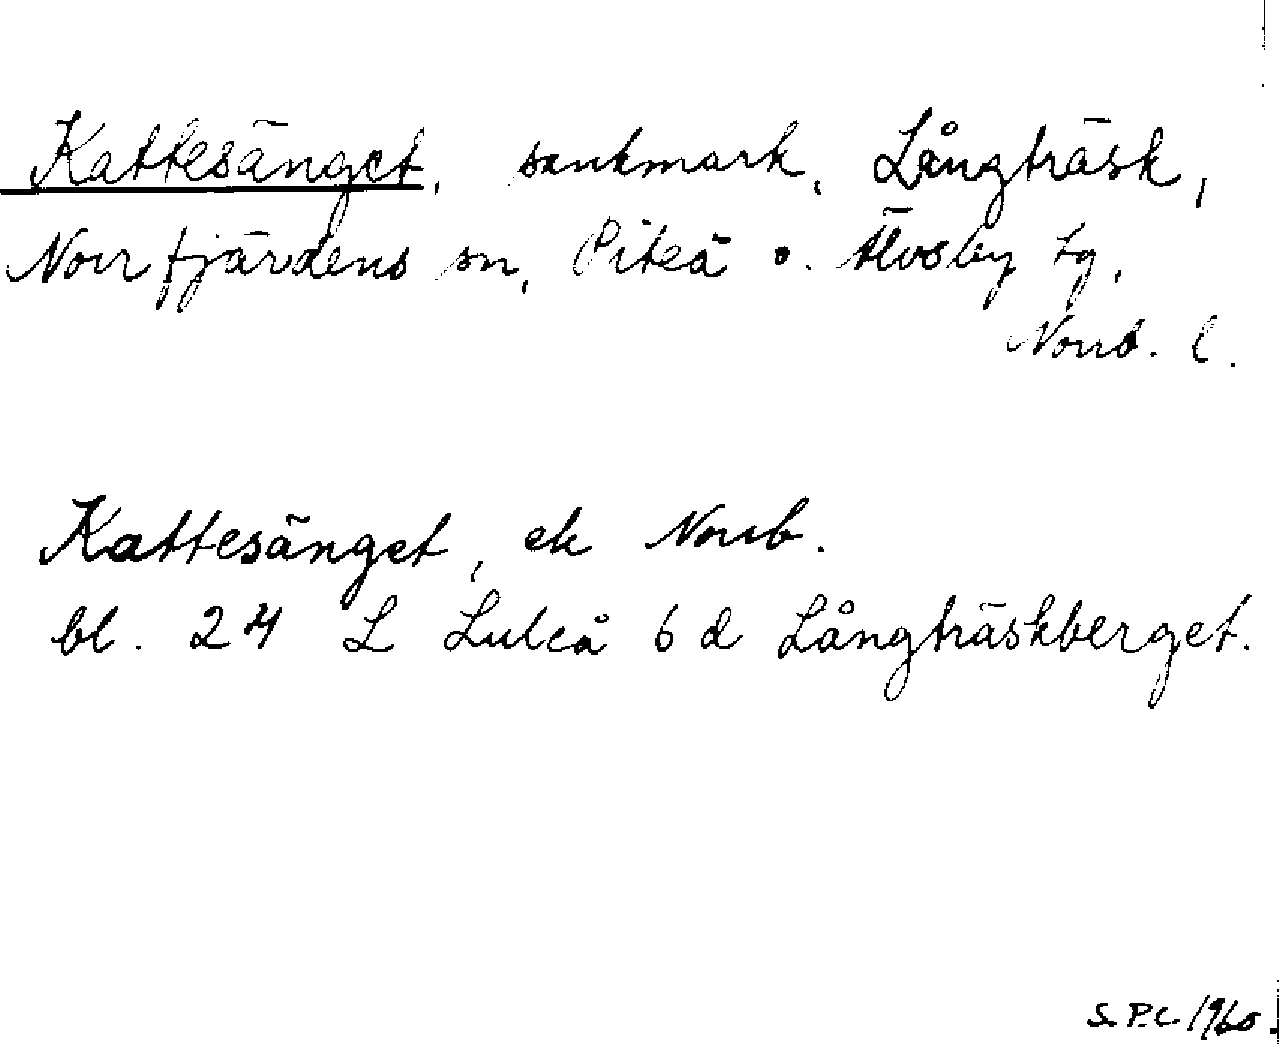 Kattesänget, sankmark, Långträsk,
Norrfjärdens sn, Piteå o. Älvsby tg,
Norrb. l.
Kattesänget, ek Norrb.
bl. 24 L Luleå 6 d Långträskberget.
S.P.C 1960.